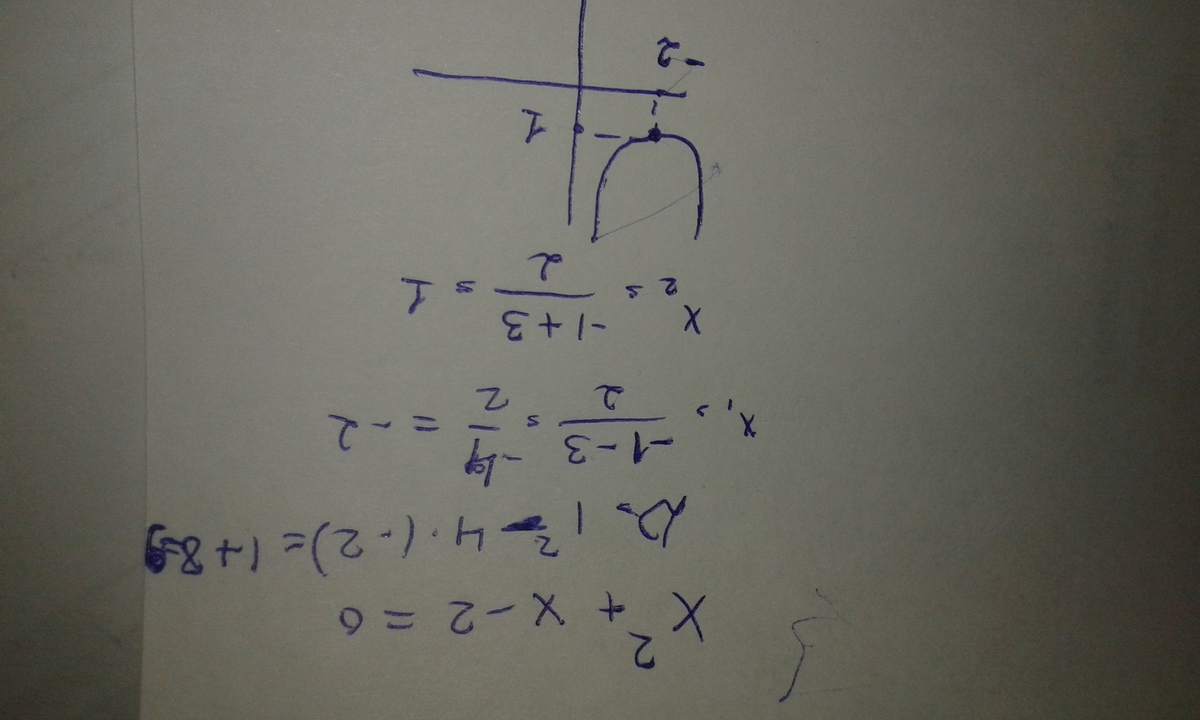 x² + x - 2 = 0
D = 1² - 4 · (-2) = 1 + 8 = 9
x₁ = (-1 - 3)/2 = -4/2 = -2
x₂ = (-1 + 3)/2 = 1
1
-2